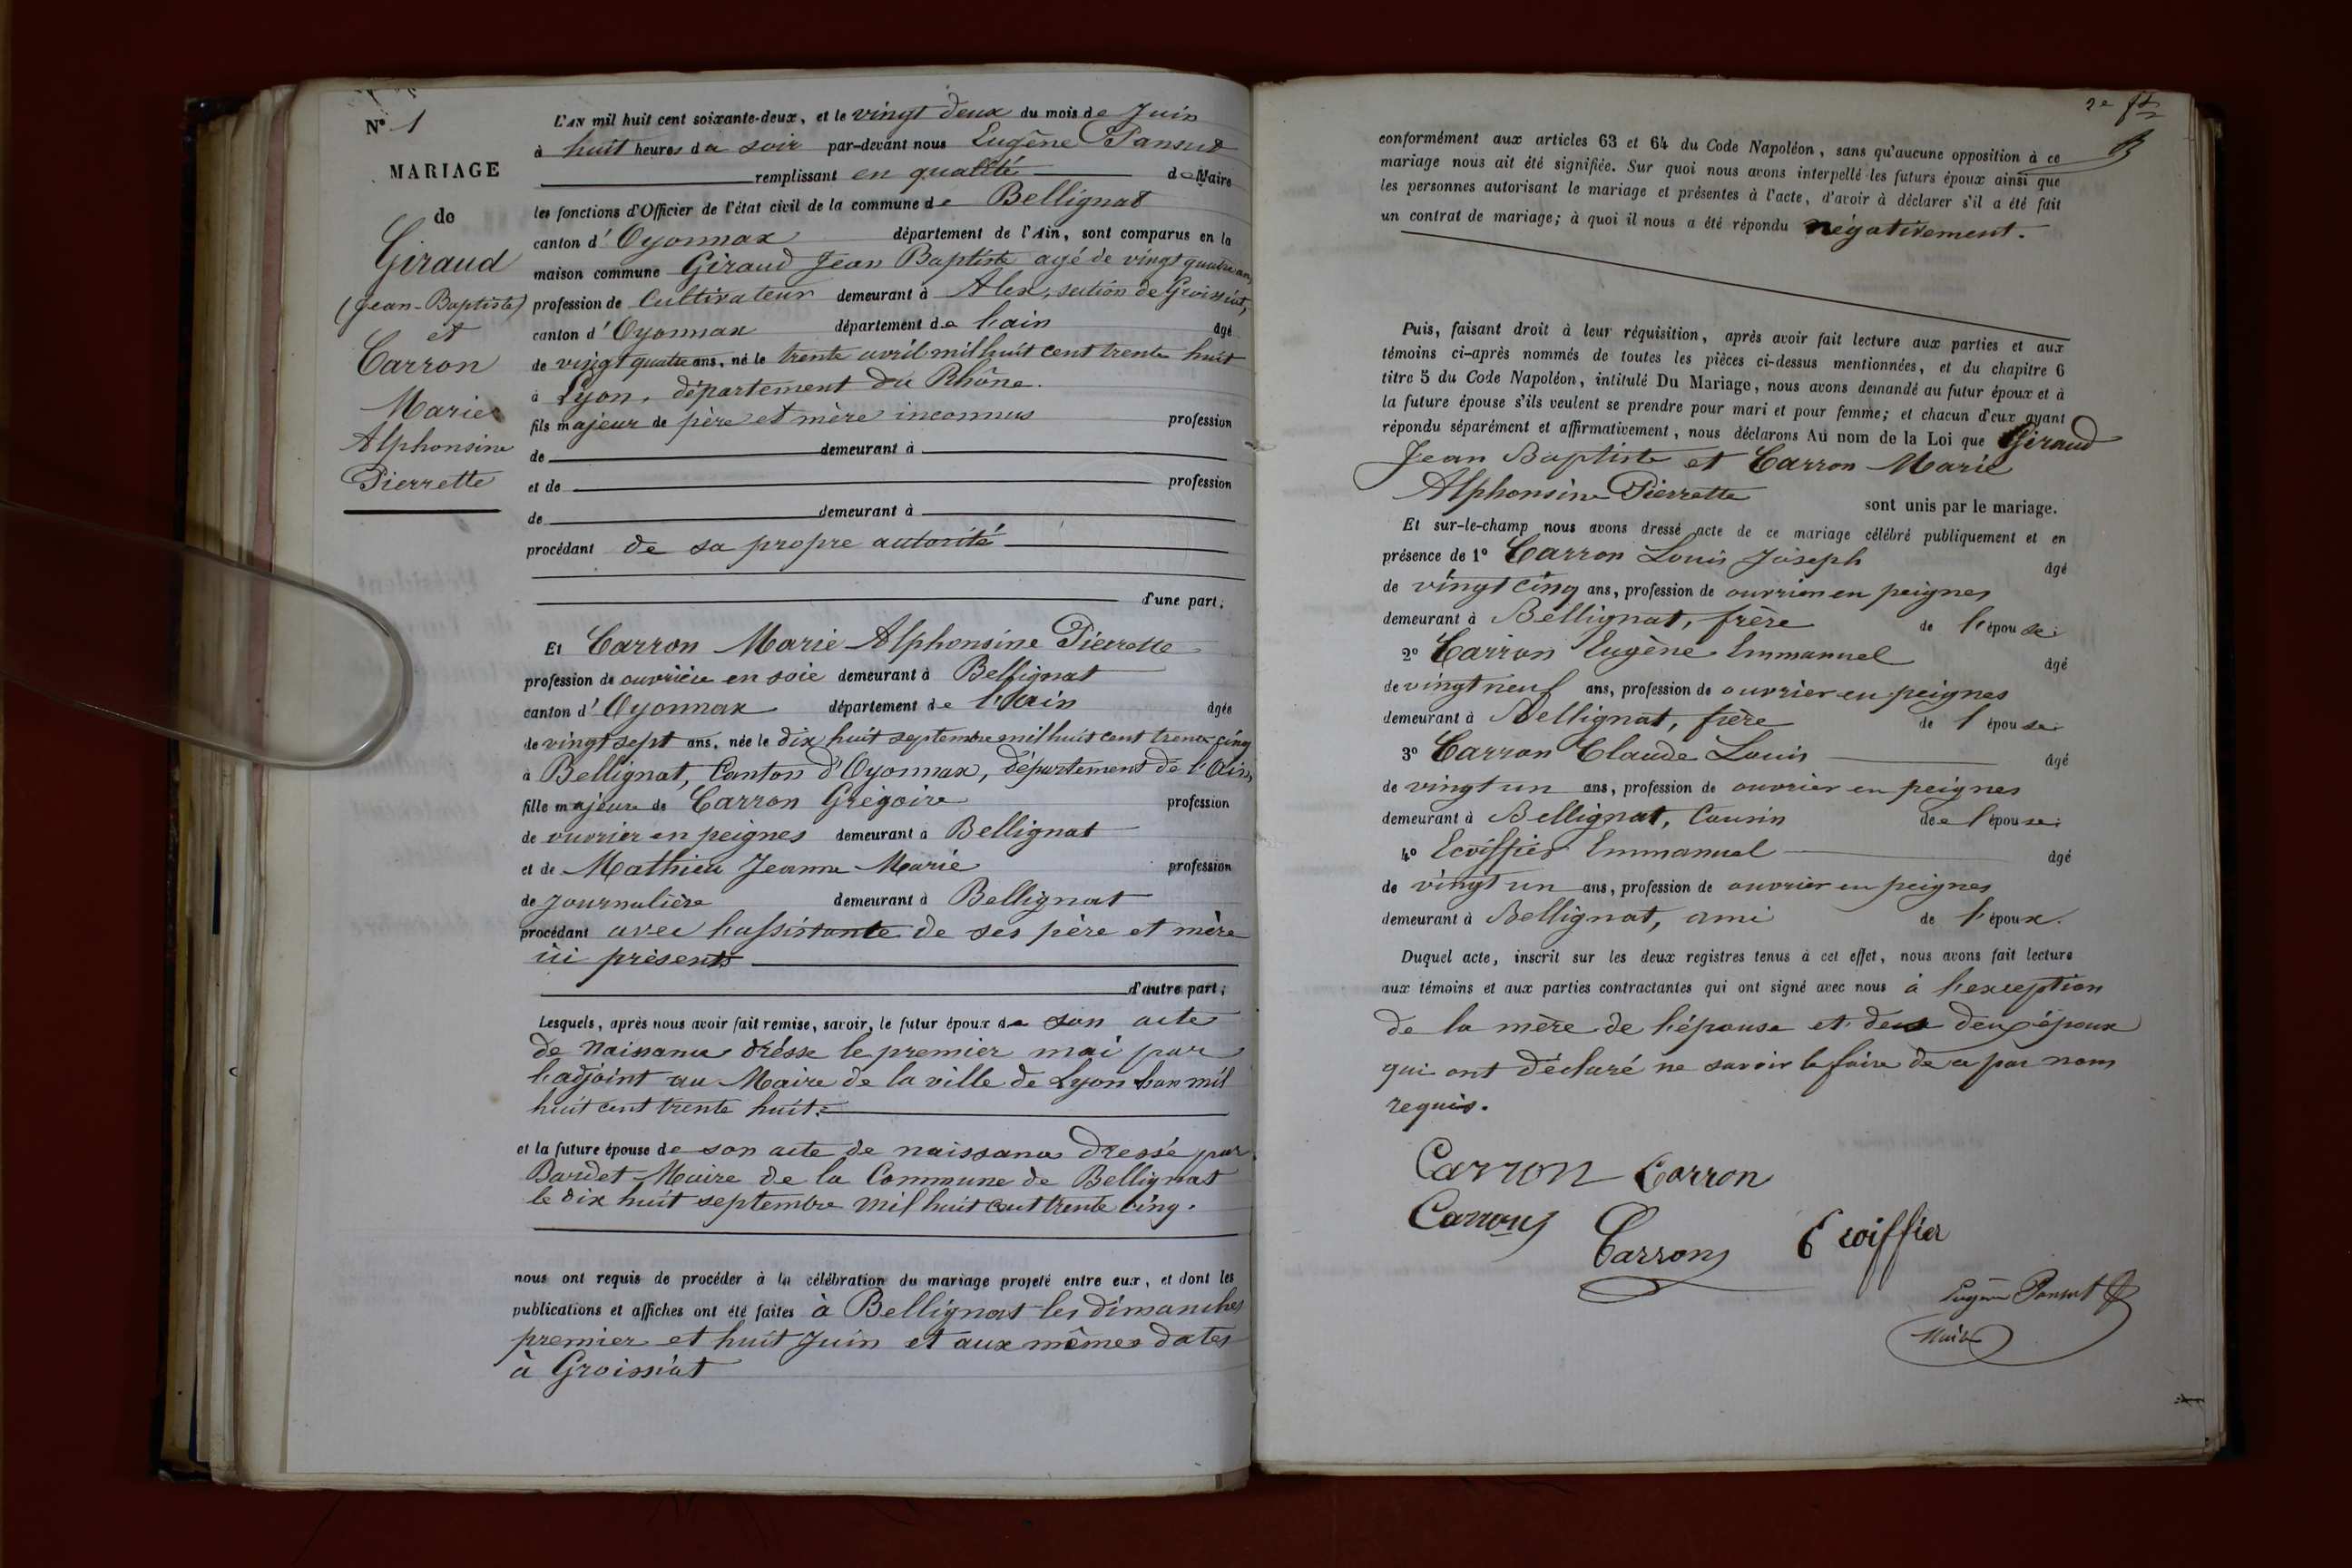 N° 1
MARIAGE
de
Giraud
(Jean-Baptiste)
et
Carron
Marie
Alphonsine
Pierrette
L'AN mil huit cent soixante-deux, et le vingt deux du mois de Juin
à huit heures du soir par-devant nous Eugène Pansut
remplissant en qualité de Maire
les fonctions d'Officier de l'état civil de la commune de Bellignat
canton d'Oyonnax département de l'Ain, sont comparus en la
maison commune Giraud Jean Baptiste agé de vingt quatre ans,
profession de Cultivateur demeurant à Alex, section de Groissiat,
canton d'Oyonnax département de l'ain âgé
de vingt quatre ans, né le trente avril mil huit cent trente huit
à Lyon, département du Rhône.
fils majeur de père et mère inconnus profession
de demeurant à
et de profession
de demeurant à
procédant de sa propre autorité
d'une part;
Et Carron Marie Alphonsine Pierrette
profession de ouvrière en soie demeurant à Bellignat
canton d'Oyonnax département de l'ain âgée
de vingt sept ans, née le dix huit septembre mil huit cent trente cinq
à Bellignat, Canton d'Oyonnax, département de l'Ain,
fille majeure de Carron Grégoire profession
de ouvrier en peignes demeurant à Bellignat
et de Mathieu Jeanne Marie profession
de Journalière demeurant à Bellignat
procédant avec l'assistante de ses père et mère
ici présents
d'autre part;
Lesquels, après nous avoir fait remise, savoir, le futur époux de son acte
de Naissance drésse le premier mai par
l'adjoint au Maire de la ville de Lyon l'an mil
huit cent trente huit.
et la future épouse de son acte de naissance dressé par
Bardet Maire de la Commune de Bellignat
le dix huit septembre mil huit cent trente cinq.
nous ont requis de procéder à la célébration du mariage projeté entre eux, et dont les
publications et affiches ont été faites à Bellignat les dimanches
premier et huit Juin et aux mêmes dates
à Groissiat
2e
conformément aux articles 63 et 64 du Code Napoléon, sans qu'aucune opposition à ce
mariage nous ait été signifiée. Sur quoi nous avons interpellé les futurs époux ainsi que
les personnes autorisant le mariage et présentes à l'acte, d'avoir à déclarer s'il a été fait
un contrat de mariage; à quoi il nous a été répondu négativement.
Puis, faisant droit à leur réquisition, après avoir fait lecture aux parties et aux
témoins ci-après nommés de toutes les pièces ci-dessus mentionnées, et du chapitre 6
titre 5 du Code Napoléon, intitulé Du Mariage, nous avons demandé au futur époux et à
la future épouse s'ils veulent se prendre pour mari et pour femme; et chacun d'eux ayant
répondu séparément et affirmativement, nous déclarons Au nom de la Loi que Giraud
Jean Baptiste et Carron Marie
Alphonsine Pierrette sont unis par le mariage.
Et sur-le-champ nous avons dressé acte de ce mariage célébré publiquement et en
présence de 1° Carron Louis Joseph âgé
de vingt cinq ans, profession de ouvrier en peignes
demeurant à Bellignat, frère de l'épouse;
2° Carron Eugène Emmanuel âgé
de vingt neuf ans, profession de ouvrier en peignes
demeurant à Bellignat, frère de l'épouse
3° Carron Claude Louis âgé
de vingt un ans, profession de ouvrier en peignes
demeurant à Bellignat, Cousin de l'épouse;
4° Ecoiffier Emmanuel âgé
de vingt un ans, profession de ouvrier en peignes
demeurant à Bellignat, ami de l'époux.
Duquel acte, inscrit sur les deux registres tenus à cet effet, nous avons fait lecture
aux témoins et aux parties contractantes qui ont signé avec nous à l'exception
de la mère de l'épouse et des deux époux
qui ont déclaré ne savoir le faire de ce par nous
requis.
Carron Carron
Carron
Carron Ecoiffier
Eugène Pansut
Maire